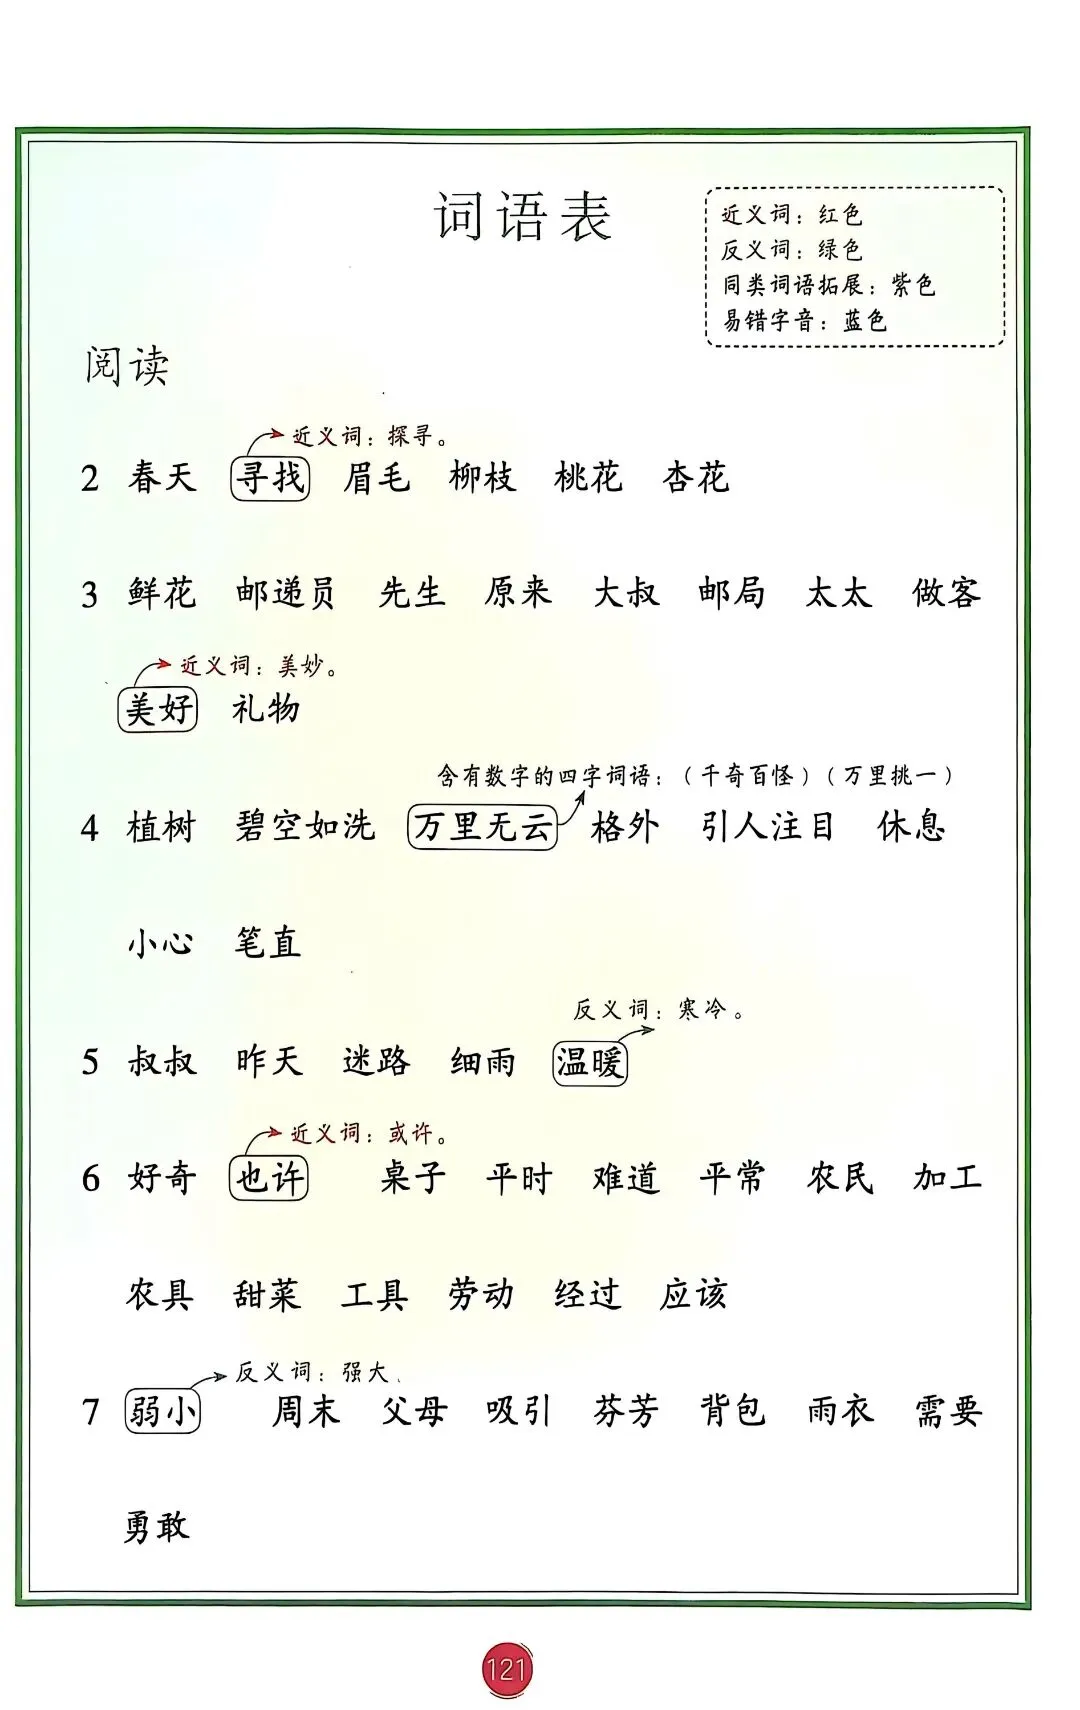 词语表
近义词：红色
反义词：绿色
同类词语拓展：紫色
易错字音：蓝色
阅读
近义词：探寻。
2 春天 寻找 眉毛 柳枝 桃花 杏花
3 鲜花 邮递员 先生 原来 大叔 邮局 太太 做客
近义词：美妙。
美好 礼物
含有数字的四字词语：（千奇百怪）（万里挑一）
4 植树 碧空如洗 万里无云 格外 引人注目 休息
小心 笔直
反义词：寒冷。
5 叔叔 昨天 迷路 细雨 温暖
近义词：或许。
6 好奇 也许 桌子 平时 难道 平常 农民 加工
农具 甜菜 工具 劳动 经过 应该
反义词：强大、
7 弱小 周末 父母 吸引 芬芳 背包 雨衣 需要
勇敢
121